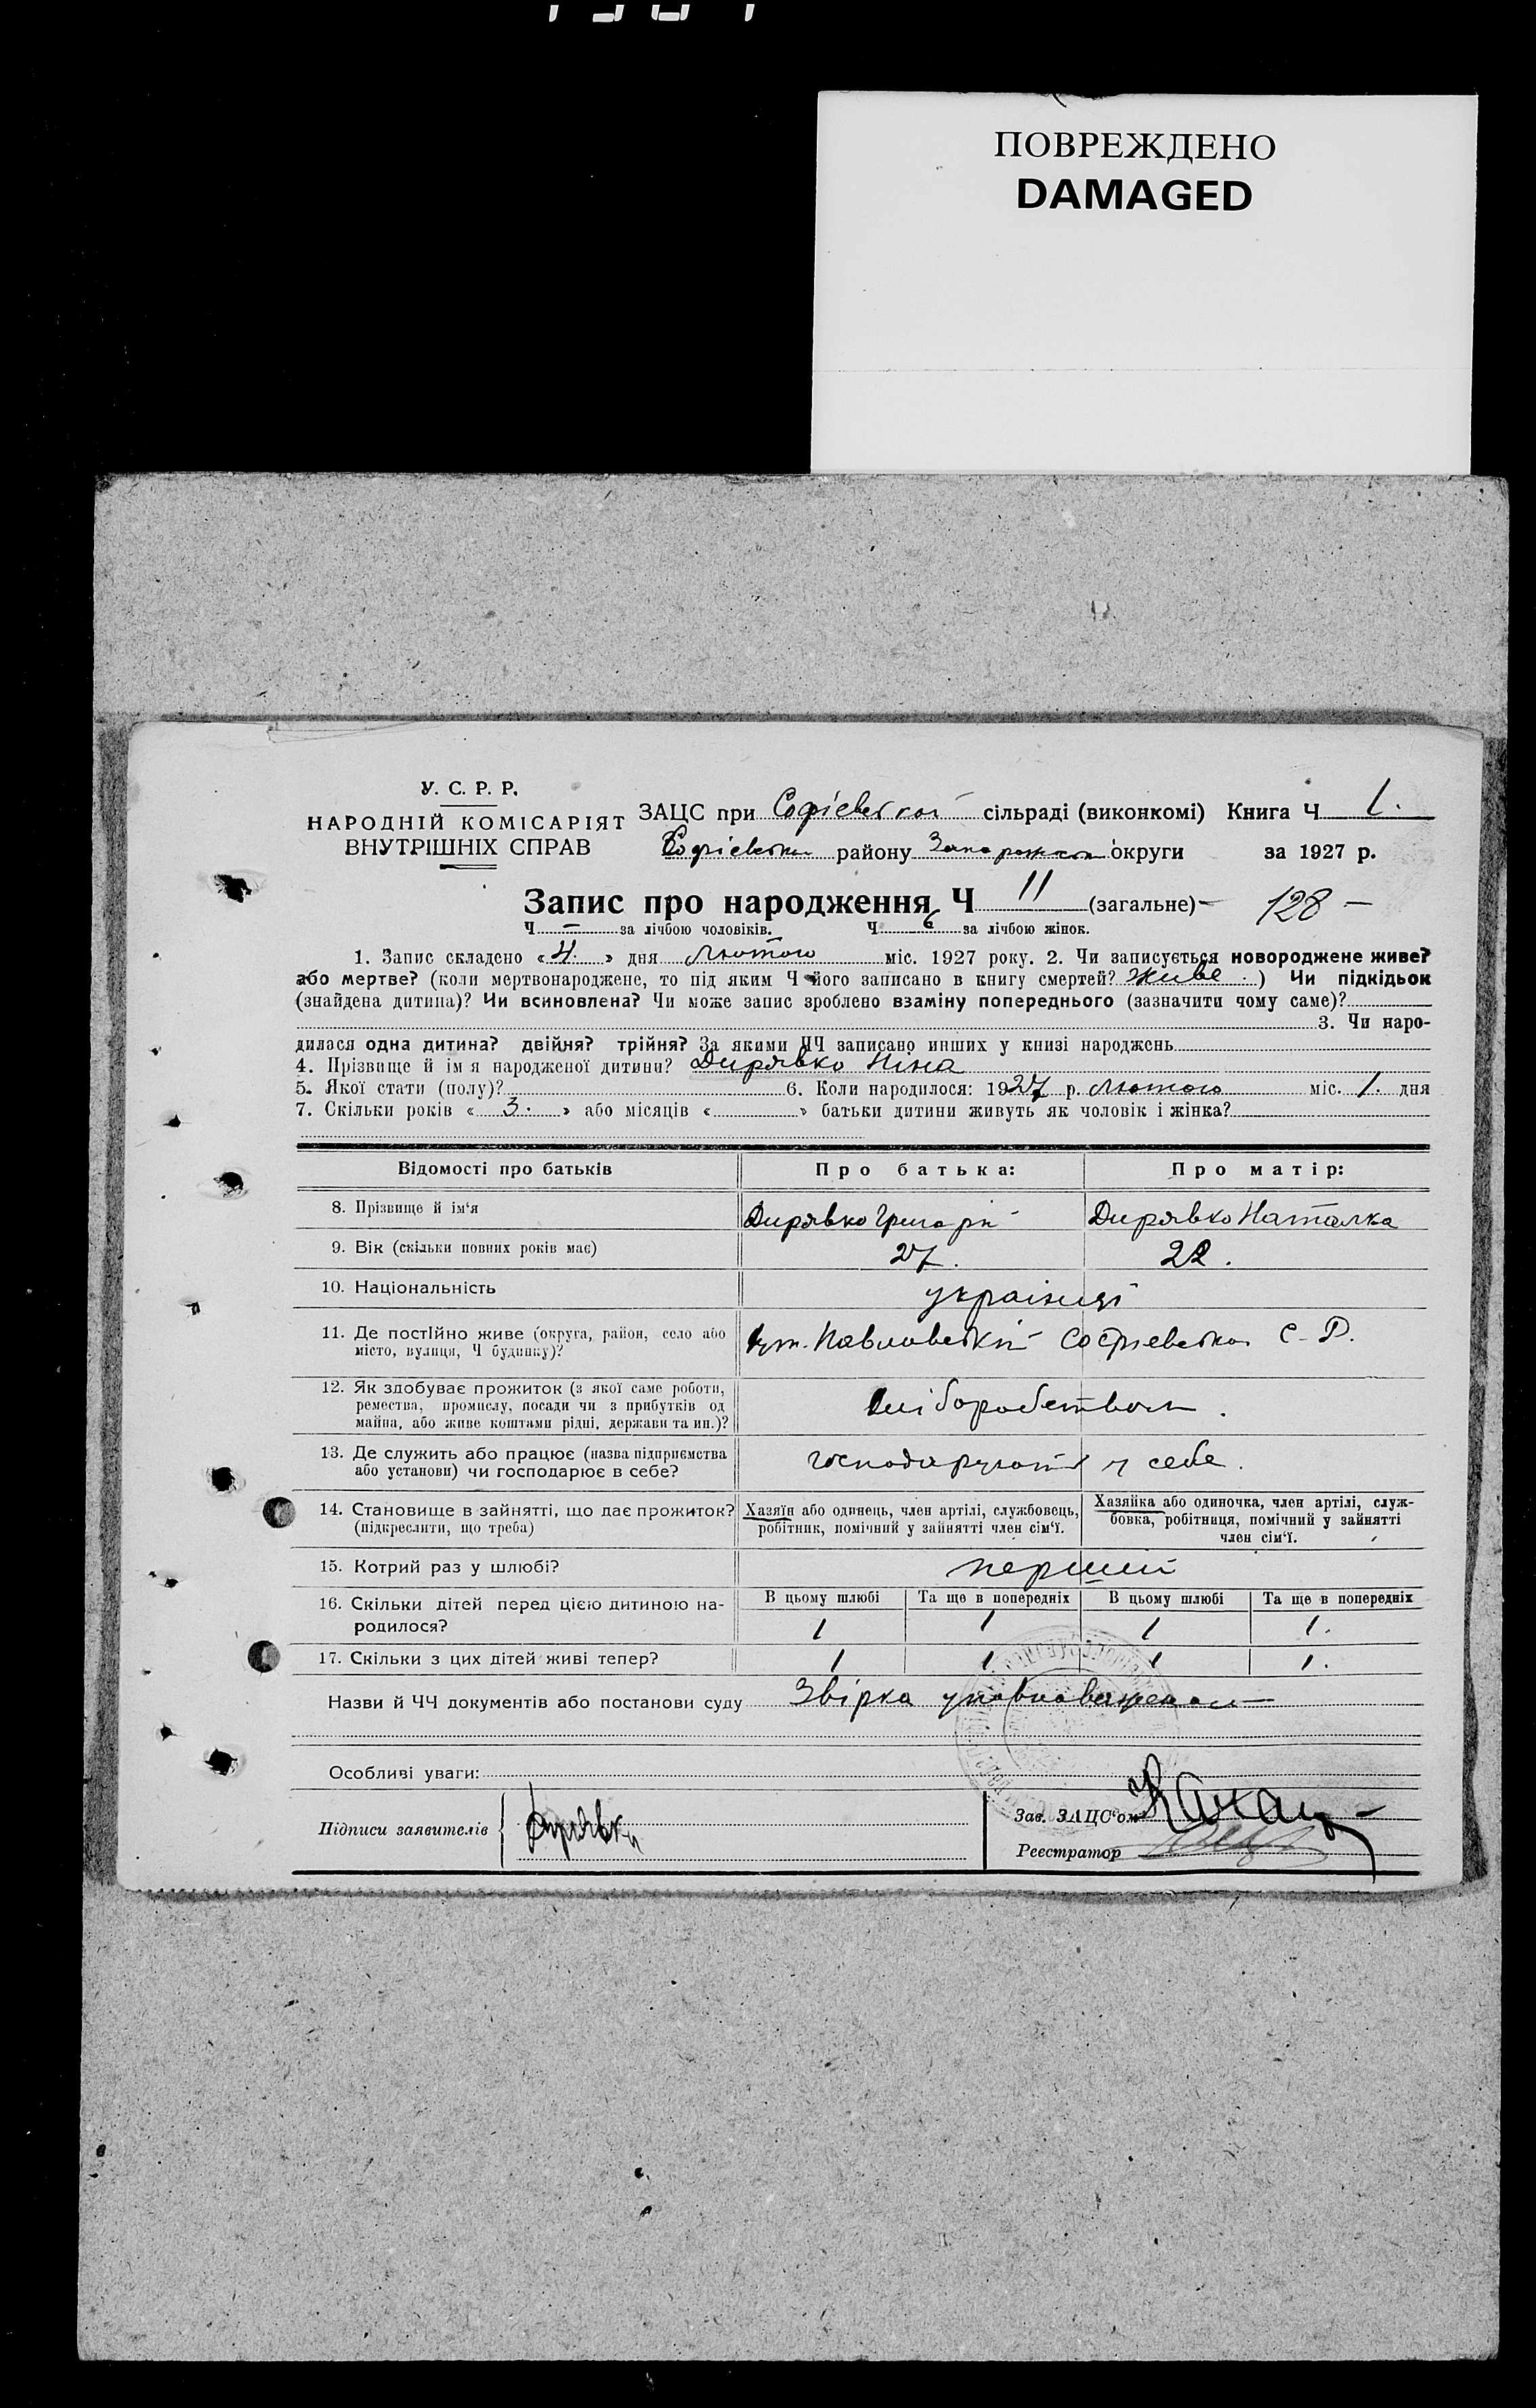 ПОВРЕЖДЕНО
DAMAGED
У. С. Р. Р.
НАРОДНІЙ КОМІСАРІЯТ
ВНУТРІШНІХ СПРАВ
ЗАЦС при Софієвській сільраді (виконкомі) Книга Ч 1.
Софієвськ району Запорожськ округи за 1927 р.
Запис про народження Ч 11 (загальне) – 128 –
Ч – за лічбою чоловіків. Ч 6 за лічбою жінок.
1. Запис складено «4» дня Лютого міс. 1927 року. 2. Чи записується новороджене живе?
або мертве? (коли мертвонароджене, то під яким Ч його записано в книгу смертей? живе.) Чи підкідьок
(знайдена дитина)? Чи всиновлена? Чи може запис зроблено взаміну попереднього (зазначити чому саме)?
3. Чи наро-
дилася одна дитина? двійня? трійня? За якими ЧЧ записано инших у книзі народжень
4. Прізвище й ім я народженої дитини? Дирявко Ніна
5. Якої стати (полу)? 6. Коли народилося: 1927 р. Лютого міс. 1. дня
7. Скільки років « 3. » або місяців « » батьки дитини живуть як чоловік і жінка?
Відомості про батьків Про батька: Про матір:
8. Прізвище й ім'я Дирявко Григорій Дирявко Наталка
9. Вік (скільки повних років має) 27. 22.
10. Національність українці
11. Де постійно живе (округа, район, село або
місто, вулиця, Ч будинку)? хут. Павловський Софієвська С-Р.
12. Як здобуває прожиток (з якої саме роботи,
ремества, промислу, посади чи з прибутків од
майна, або живе коштами рідні, держави та ин.)? хліборобством.
13. Де служить або працює (назва підприємства
або установи) чи господарює в себе? господарують у себе.
14. Становище в зайнятті, що дає прожиток?
(підкреслити, що треба)
Хазяїн або одинець, член артілі, службовець,
робітник, помічний у зайнятті член сім'ї.
Хазяйка або одиночка, член артілі, служ-
бовка, робітниця, помічний у зайнятті
член сім'ї.
15. Котрий раз у шлюбі? перший
16. Скільки дітей перед цією дитиною на-
родилося?
В цьому шлюбі Та ще в попередніх В цьому шлюбі Та ще в попередніх
1 1 1 1.
17. Скільки з цих дітей живі тепер? 1 1 1 1.
Назви й ЧЧ документів або постанови суду Звірка уповноваженом
Особливі уваги:
Підписи заявителів Дирявки
Зав. ЗАЦС'ом
Реєстратор